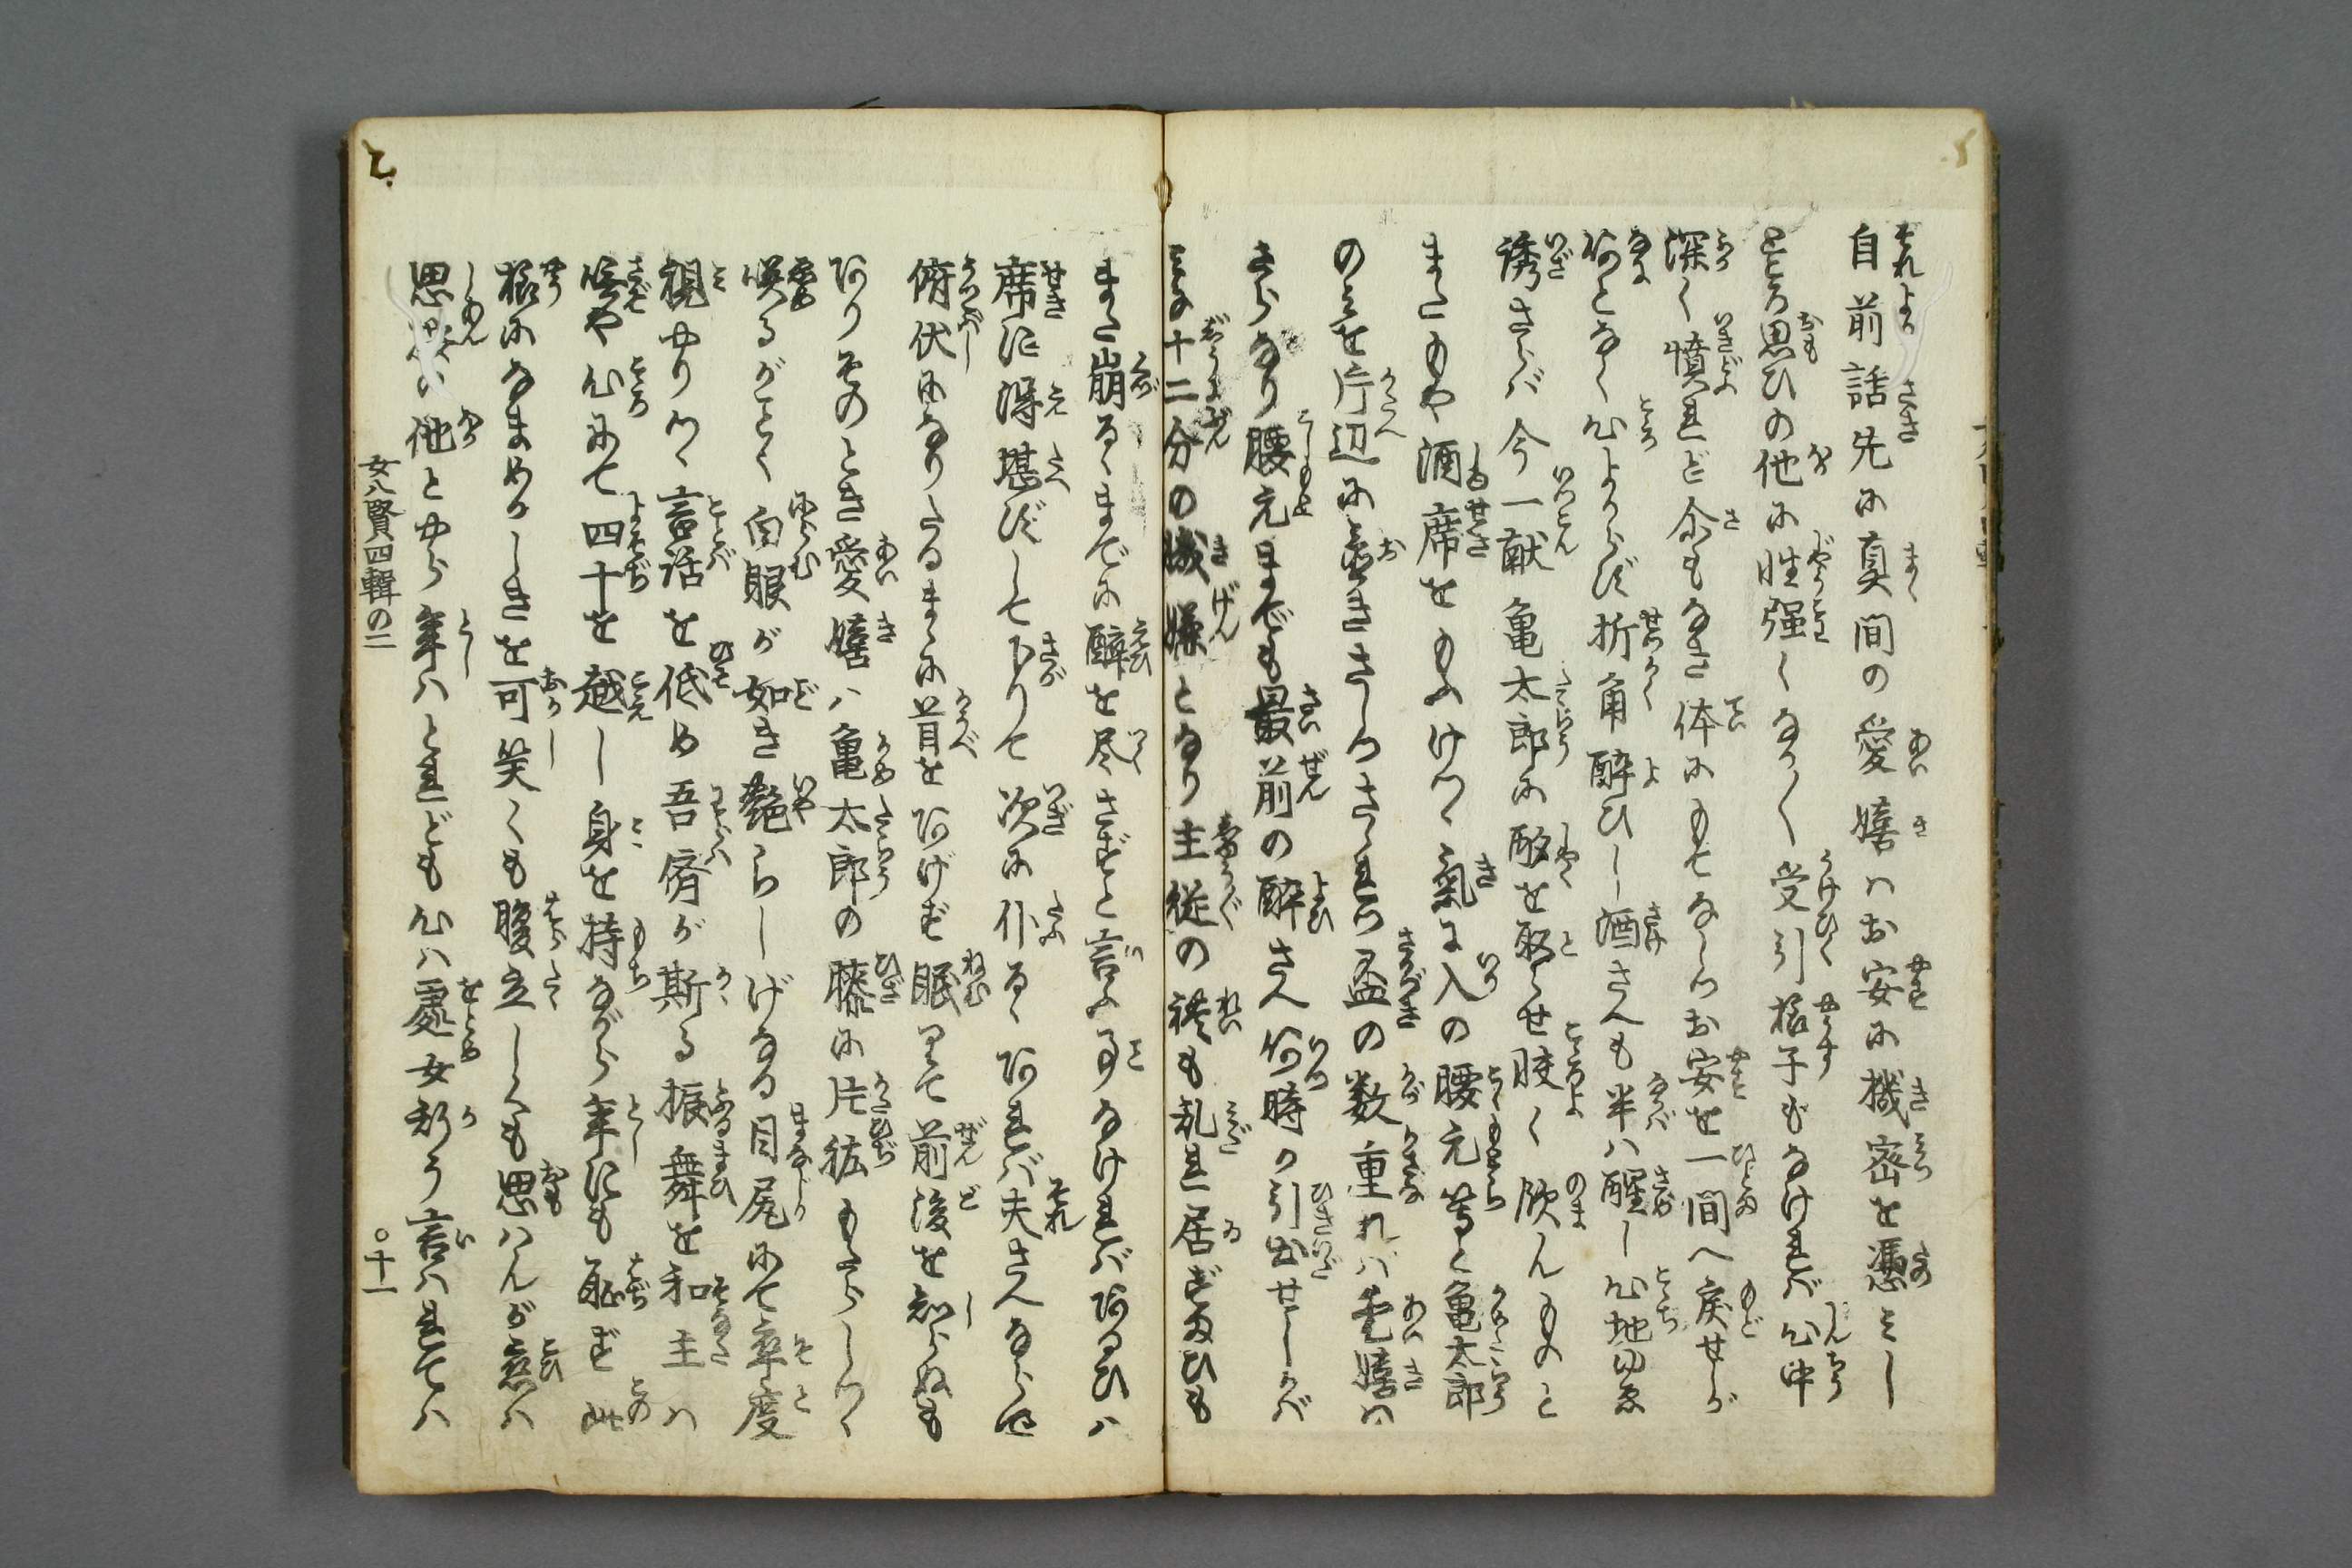 自前話先に真間の愛嬉ハお安に機密を憑ミし
ところ思ひの他に性強くなか〳〵受引様子もなけれバ心中
深く憤れど余もなき体にもてなしつお安を一間へ戻せしが
何となく心よからず折角酔ひし酒さへも半ハ醒し心地ゆゑ
誘さらバ今一献亀太郎に酌を取らせ快く飲んものと
またもや酒席をもふけつゝ氣に入の腰元等と亀太郎
のミを片辺に置きさしつさゝれつ盃の数重れバ愛嬉ハ
さらなり腰元までも最前の酔さへ何時か引出せしかバ
ミな十二分の機嫌となり主従の礼も乱れ居ずまひも
また崩るゝまでに酔を尽さずと言ふ事なけれバあるひハ
席に得堪ずして下りて次に仆るゝあれバ夫さへならで
俯伏になりたるまゝに首をあげず眠りて前後を知らぬも
ありそのとき愛嬉ハ亀太郎の膝に片肱もたらしつゝ
咲るがごとく白眼が如き艶らしげなる目尻にて卒度
視やりつゝ言話を低め吾儕が斯る振舞を和主ハ
嘸や心にて四十を越し身を持ながら年にも恥ず此
様になまめかしきを可笑くも腹立しくも思ハんが恋ハ
思案の他とやら年ハとれども心ハ處女私う言ハれてハ
女八賢四輯の二
○十一